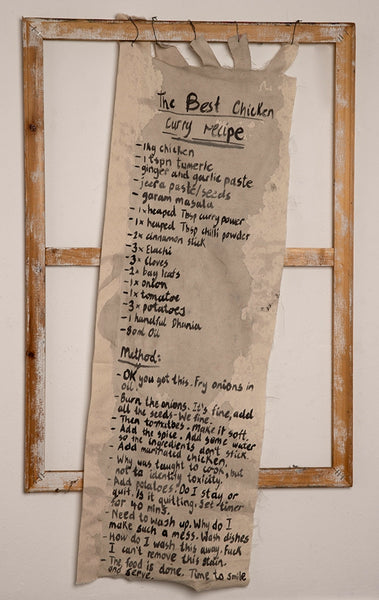 The Best Chicken
Curry recipe
-1kg chicken
-1 tspn tumeric
-ginger and garlic paste
-jeera paste/seeds
-garam masala
-1x heaped Tbsp curry power
-1x heaped Tbsp chilli powder
-2x cinnamon stick
-3x Elachi
-3x Cloves
-2x bay leafs
-1x onion
-1x tomatoe
-3x potatoes
-1 handful Dhania
-80ml Oil
Method:
-OK you got this. Fry onions in
oil.
-Burn the onions. It's fine, add
all the seeds-We fine.
-Then tomatoes. Make it soft.
-Add the spice. Add some water
so the ingredients don't stick.
-Add marinated chicken,
-Why was taught to cook, but
not to identify toxicity.
-Add potatoes. Do I stay or
quit. Is it quitting. Set timer
for 40 mins.
-Need to wash up. Why do I
make such a mess. Wash dishes
-How do I wash this away. Fuck
I can't remove this stain.
-The food is done. Time to smile
and serve.